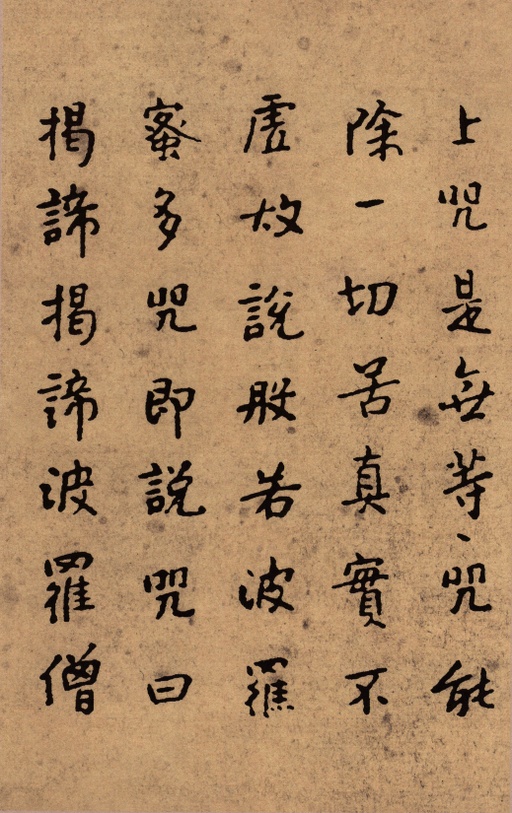 上咒是無等、咒能
除一切苦真實不
虛故說般若波羅
蜜多咒即說咒曰
揭諦揭諦波羅僧